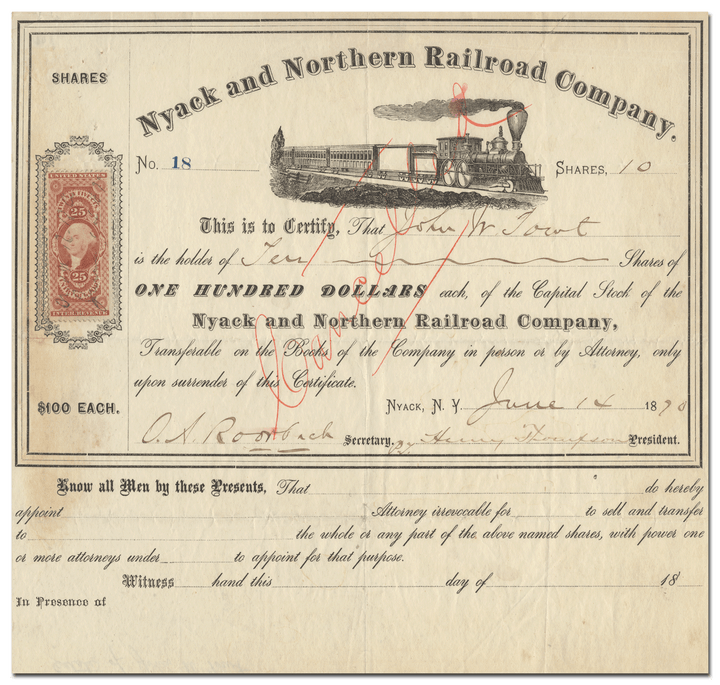 SHARES
Nyack and Northern Railroad Company.
No. 18
SHARES, 10
This is to Certify, That John W Towt
is the holder of Ten Shares of
ONE HUNDRED DOLLARS each, of the Capital Stock of the
Nyack and Northern Railroad Company,
Transferable on the Books of the Company in person or by Attorney, only
upon surrender of this Certificate.
Cancelled
UNITED STATES
25
25
INTER. REVENUE
$100 EACH.
NYACK, N. Y. June 14 1870
O. A. Roorback Secretary, Henry Thompson President.
Know all Men by these Presents, That do hereby
appoint Attorney irrevocable for to sell and transfer
to the whole or any part of the above named shares, with power one
or more attorneys under to appoint for that purpose.
Witness hand this day of 18
In Presence of